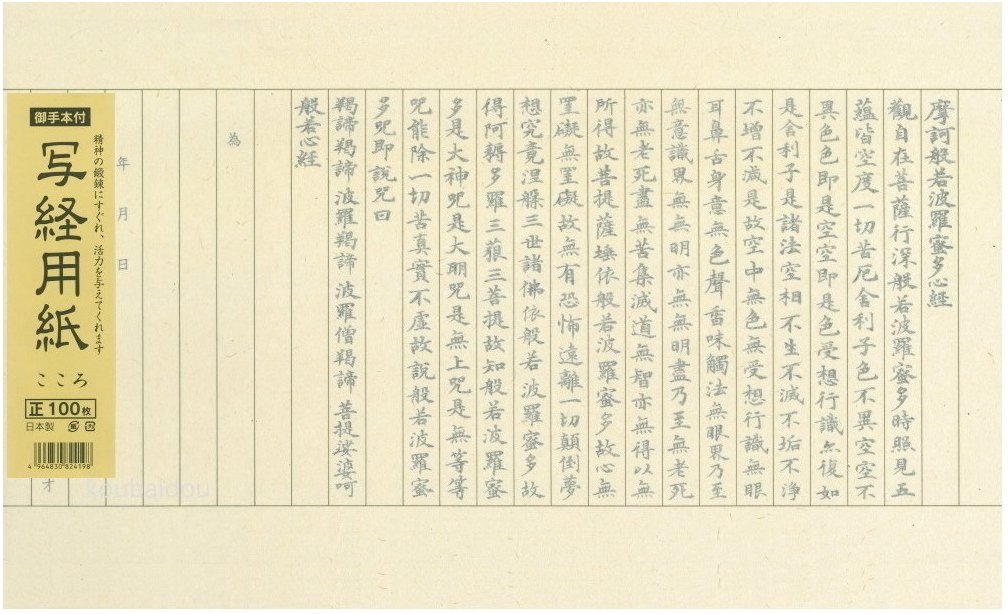 摩訶般若波羅蜜多心経
觀自在菩薩行深般若波羅蜜多時照見五
蘊皆空度一切苦厄舍利子色不異空空不
異色色即是空空即是色受想行識亦復如
是舍利子是諸法空相不生不滅不垢不浄
不増不減是故空中無色無受想行識無眼
耳鼻舌身意無色聲香味觸法無眼界乃至
無意識界無無明亦無無明盡乃至無老死
亦無老死盡無苦集滅道無智亦無得以無
所得故菩提薩埵依般若波羅蜜多故心無
罣礙無罣礙故無有恐怖遠離一切顛倒夢
想究竟涅槃三世諸佛依般若波羅蜜多故
得阿耨多羅三藐三菩提故知般若波羅蜜
多是大神呪是大明呪是無上呪是無等等
呪能除一切苦真實不虚故説般若波羅蜜
多呪即説呪曰
羯諦羯諦 波羅羯諦 波羅僧羯諦 菩提娑婆呵
般若心経
為
年 月 日
御手本付
精神の鍛錬にすぐれ、活力を与えてくれます
写経用紙
こころ
正100枚
日本製
4 964830 824198
才
koubaidou